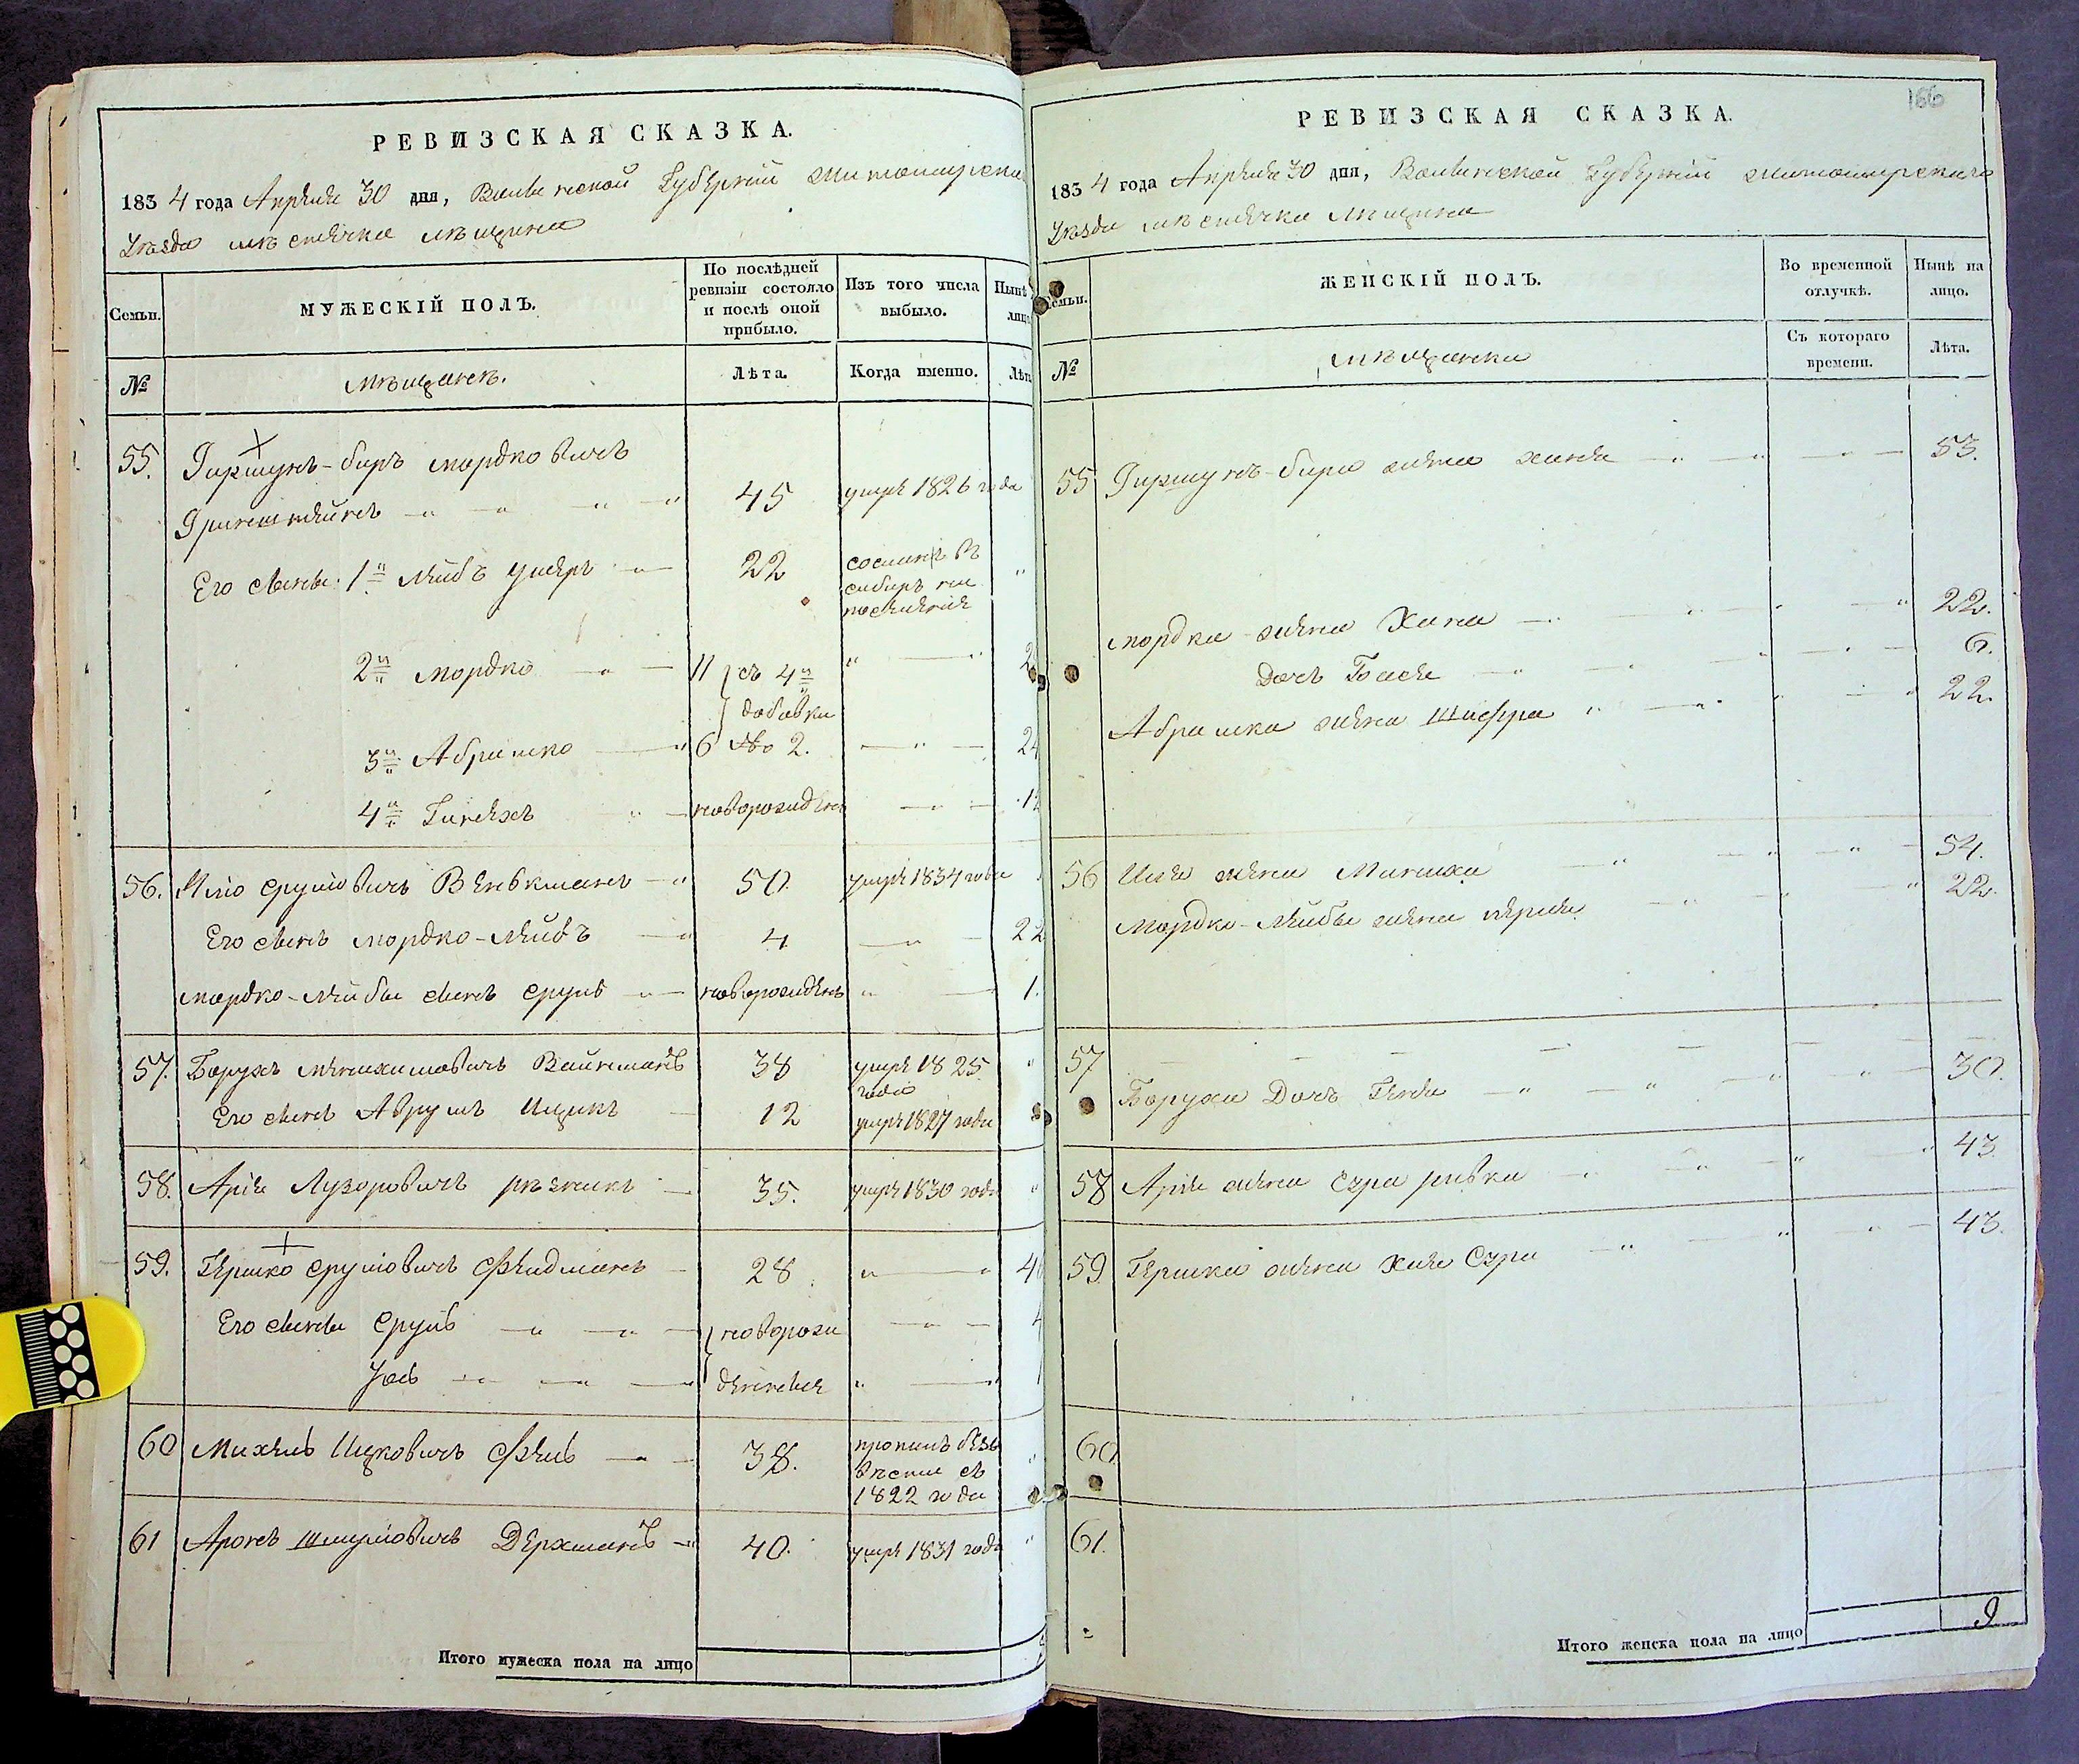 РЕВИЗСКАЯ СКАЗКА.
1834 года Апреля 30 дня, Волынской Губернiи Житомирска
Уезда местечка
Семьи.
МУЖЕСКIЙ ПОЛЪ.
По послѣдней ревизiи состояло и послѣ оной прибыло.
Изъ того числа выбыло.
Нынѣ
лиц
№
мѣщанъ.
Лѣта.
Когда именно.
Лѣт
55.
Гиршунъ-беръ Мордковичъ
Гринштейнъ
45
умре 1826 года
Его сыны: 1й Лейбъ
22
сосланъ въ
сибирь на
поселенiе
2й Мордко
11
съ 4й
добавки
3й Абрамко
6 No 2.
4й
новорожденъ
56.
Срулiовичъ
50.
умре 1834 года
Его сынъ Мордко-Лейбъ
4
22
Мордко-Лейбы сынъ Сруль
новорожденъ
1.
57.
Борухъ Вайнманъ
38
умре 1825
года
Его сынъ Аврумъ Ицикъ
12
умре 1827 года
58.
Арiя Лузоровичъ рѣзникъ
35.
умре 1830 года
59.
Гершко Срулiовичъ Фельдманъ
28
Его сыны Сруль
новорож
Иось
денные
60
Михель Ицковичъ
38.
пропалъ безъ
вѣсти съ
1822 года
61
Аронъ Шмулiовичъ
40.
умре 1831 года
Итого мужеска пола на лицо
166
РЕВИЗСКАЯ СКАЗКА.
1834 года Апреля 30 дня, Волынской Губернiи Житомирскаго
Уезда местечка
емьи.
ЖЕНСКIЙ ПОЛЪ.
Во временной отлучкѣ.
Нынѣ на лицо.
№
мѣщанки
Съ котораго времени.
Лѣта.
55
Гиршунъ-бера жена Ханя
53.
Мордка жена Хана
22.
Дочь Бася
6.
Абрамка жена Шифра
22.
56
жена Малка
54.
Мордко-Лейбы жена Перля
22.
57
Боруха Дочь Геня
30.
58
Арiя жена Сура ривка
43.
59
Гершка жена Хая Сура
43.
60
61.
Итого женска пола на лицо
9